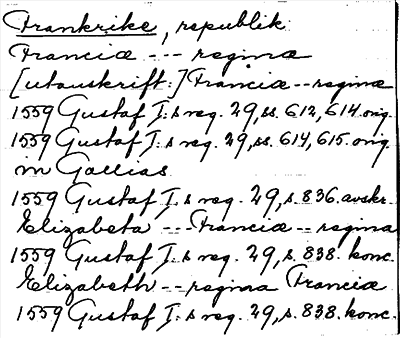 Frankrike, republik
Franciæ --- reginæ
[utanskrift:] Franciæ -- reginæ
1559 Gustaf I:s reg. 29, ss. 612, 614. orig.
1559 Gustaf I:s reg. 29, ss. 614, 615. orig.
in Gallias
1559 Gustaf I:s reg. 29, s. 836. avskr.
Elizabeta --- Franciæ -- regina
1559 Gustaf I:s reg. 29, s. 838. konc.
Elizabeth -- regina Franciæ
1559 Gustaf I:s reg. 29, s. 838. konc.